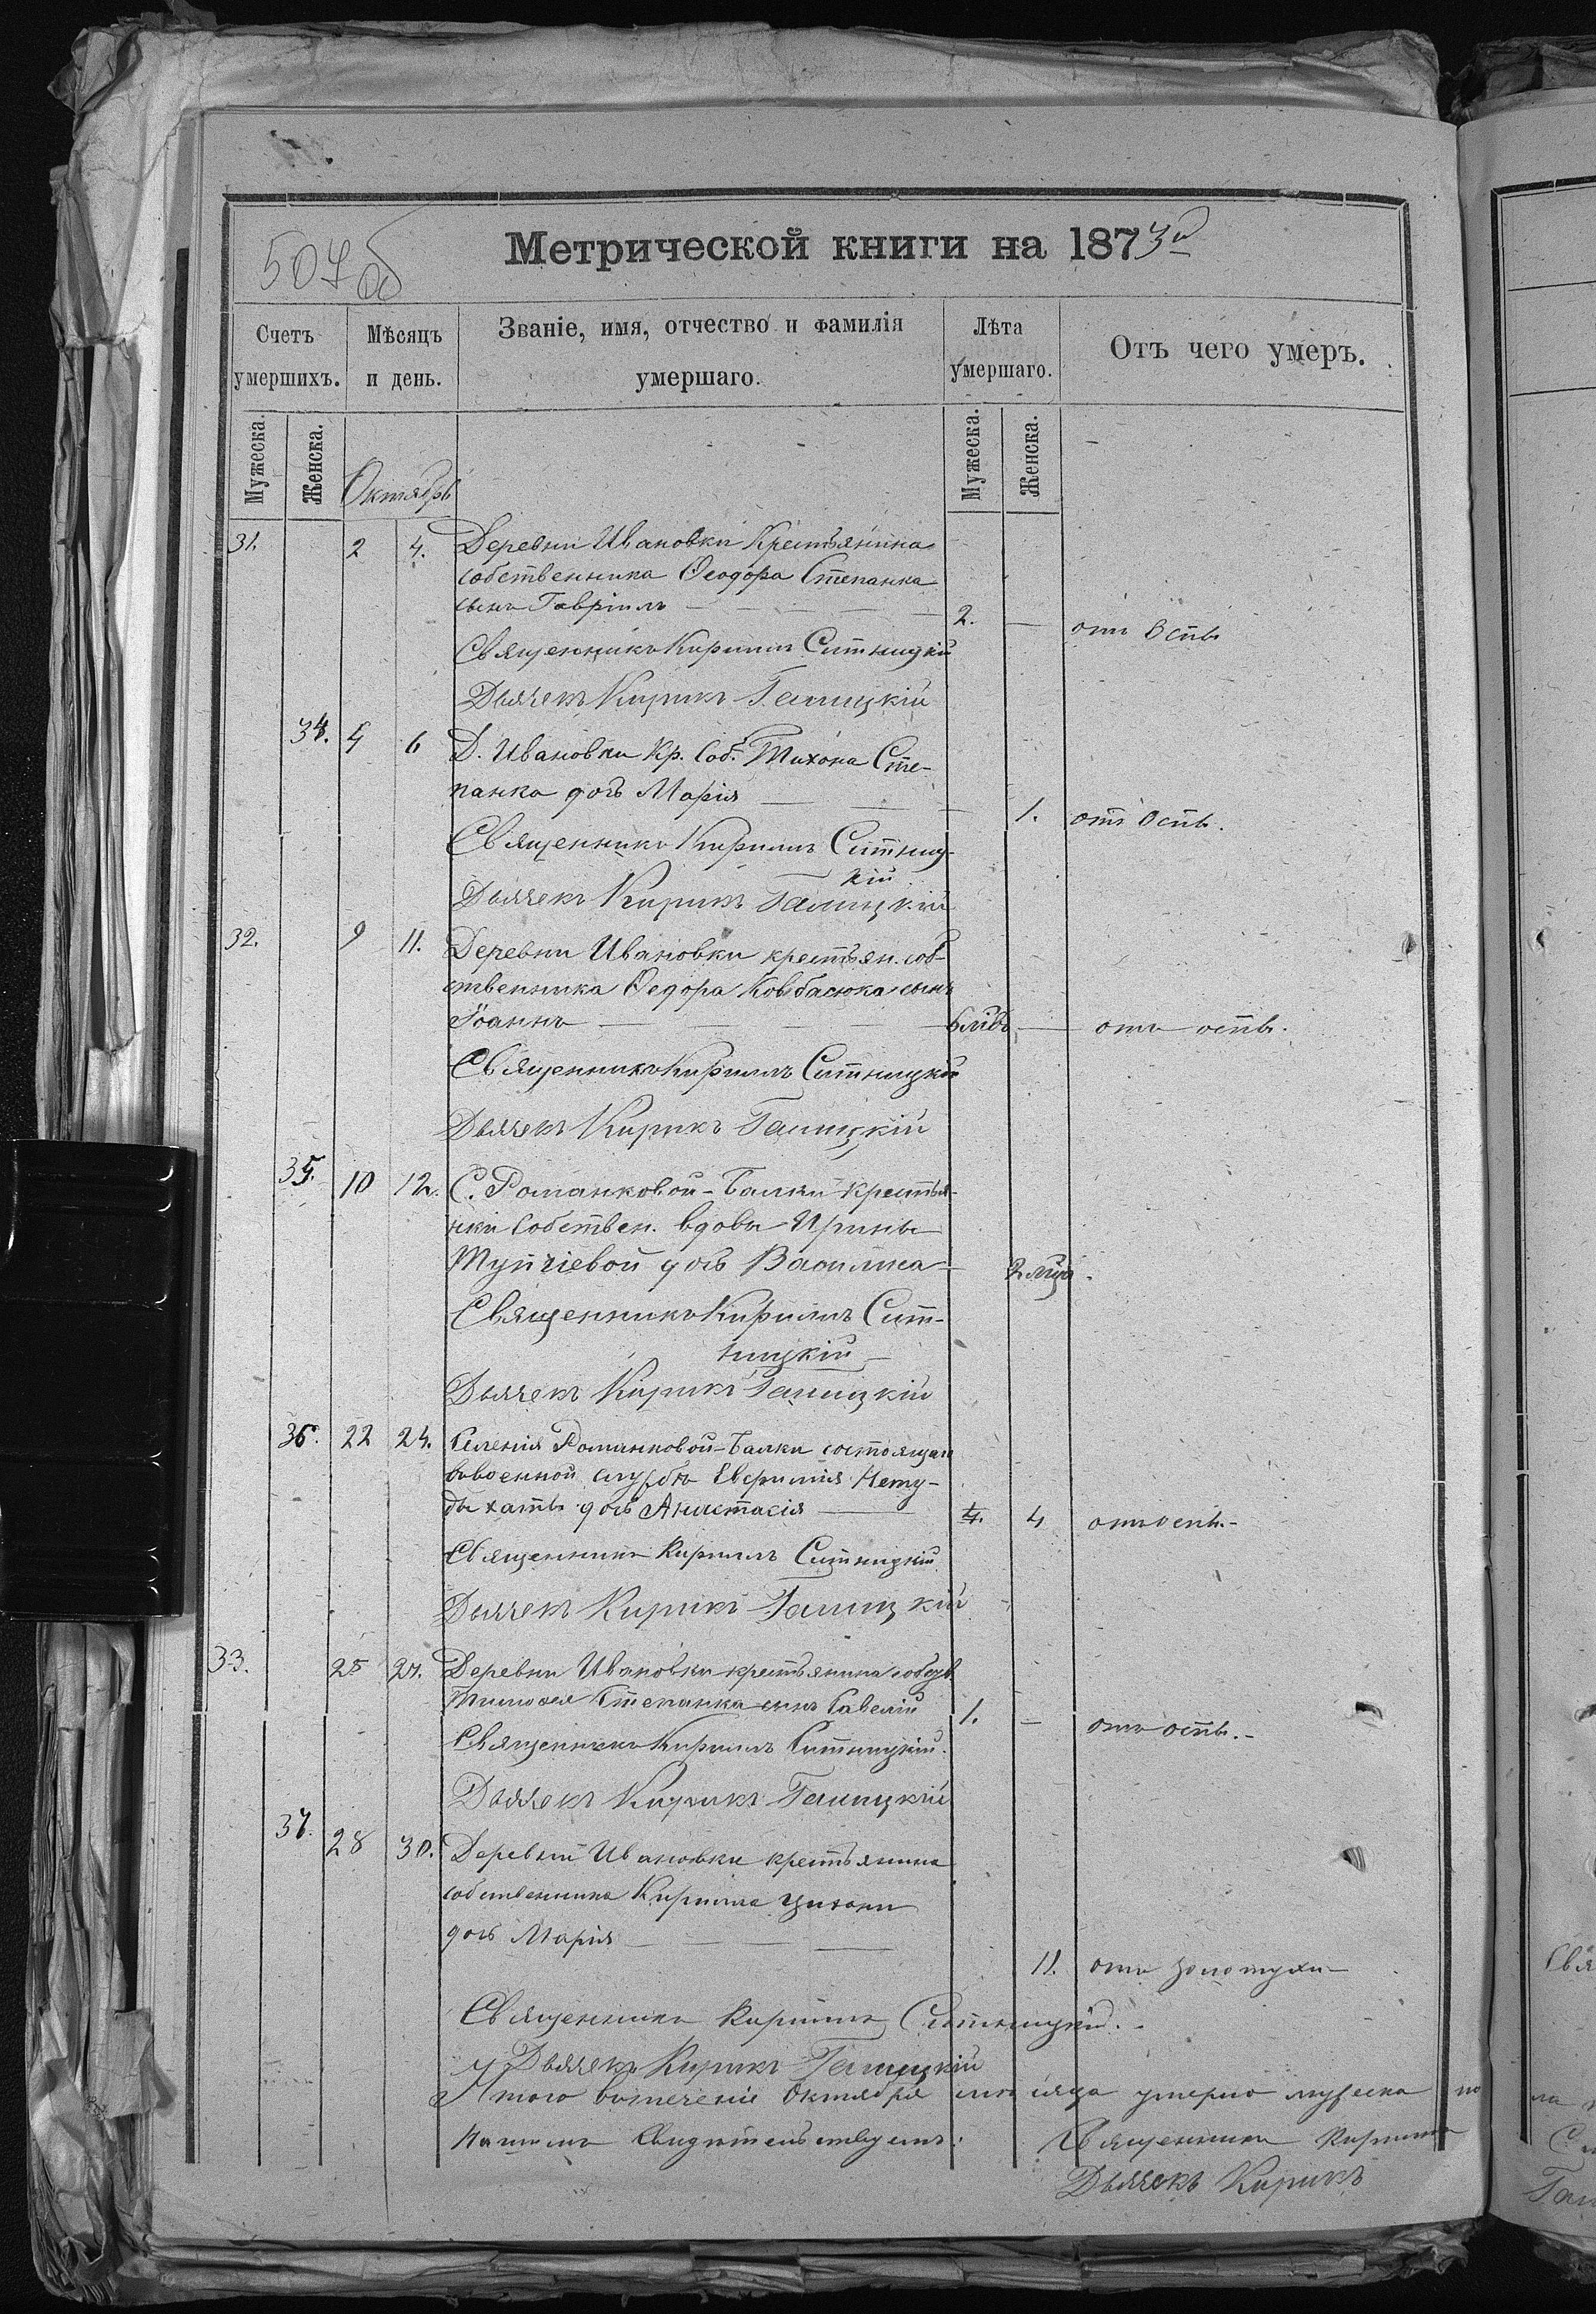 507 об
Метрической книги на 1873й
Счетъ умершихъ.
Мѣсяцъ и день.
Званіе, имя, отчество и фамилія умершаго.
Лѣта умершаго.
Отъ чего умеръ.
Мужеска. Женска. Октябрь Мужеска. Женска.
31. 2 4. Деревни Ивановки Крестьянина
собственника Ѳеодора Степанка
сынъ Гавріилъ 2. — отъ Оспы
Священникъ Кириллъ Ситницкій
Дьячекъ Кирикъ Галицкій
34. 4 6 Д. Ивановки Кр. Соб. Тихона Сте-
панка дочь Марія 1. отъ Оспы.
Священникъ Кириллъ Ситниц-
кій
Дьячекъ Кирикъ Галицкій
32. 9 11. Деревни Ивановки крестьян. соб-
ственника Ѳедора Ковбасюка сынъ
Іоаннъ — отъ оспы.
Священникъ Кириллъ Ситницкій
Дьячекъ Кирикъ Галицкій
35. 10 12. С. Романковой-Балки крестья-
нки Собствен. вдовы Ирины
дочь Василиса
Священникъ Кириллъ Сит-
ницкій
Дьячекъ Кирикъ Галицкій
36. 22 24. Селенія Романковой-Балки состоящаго
въ военной службѣ Нету-
дыхаты дочь Анастасія 4. 4 отъ оспы.-
Священникъ Кириллъ Ситницкій
Дьячекъ Кирикъ Галицкій
33. 25 27. Деревни Ивановки крестьянина собств
Тимоѳея Степанка сынъ Савелій 1. - отъ оспы.-
Священникъ Кириллъ Ситницкій.
Дьячекъ Кирикъ Галицкій
37. 28 30. Деревни Ивановки крестьянина
собственника Кирилла
дочь Марія 11. отъ золотухи
Священникъ Кириллъ Ситницкій.
Дьячекъ Кирикъ Галицкій
Итого въ теченіе Октября мѣсяца умерло мужеска по
Свидѣтельствуемъ: Священникъ Кириллъ
Дьячекъ Кирикъ